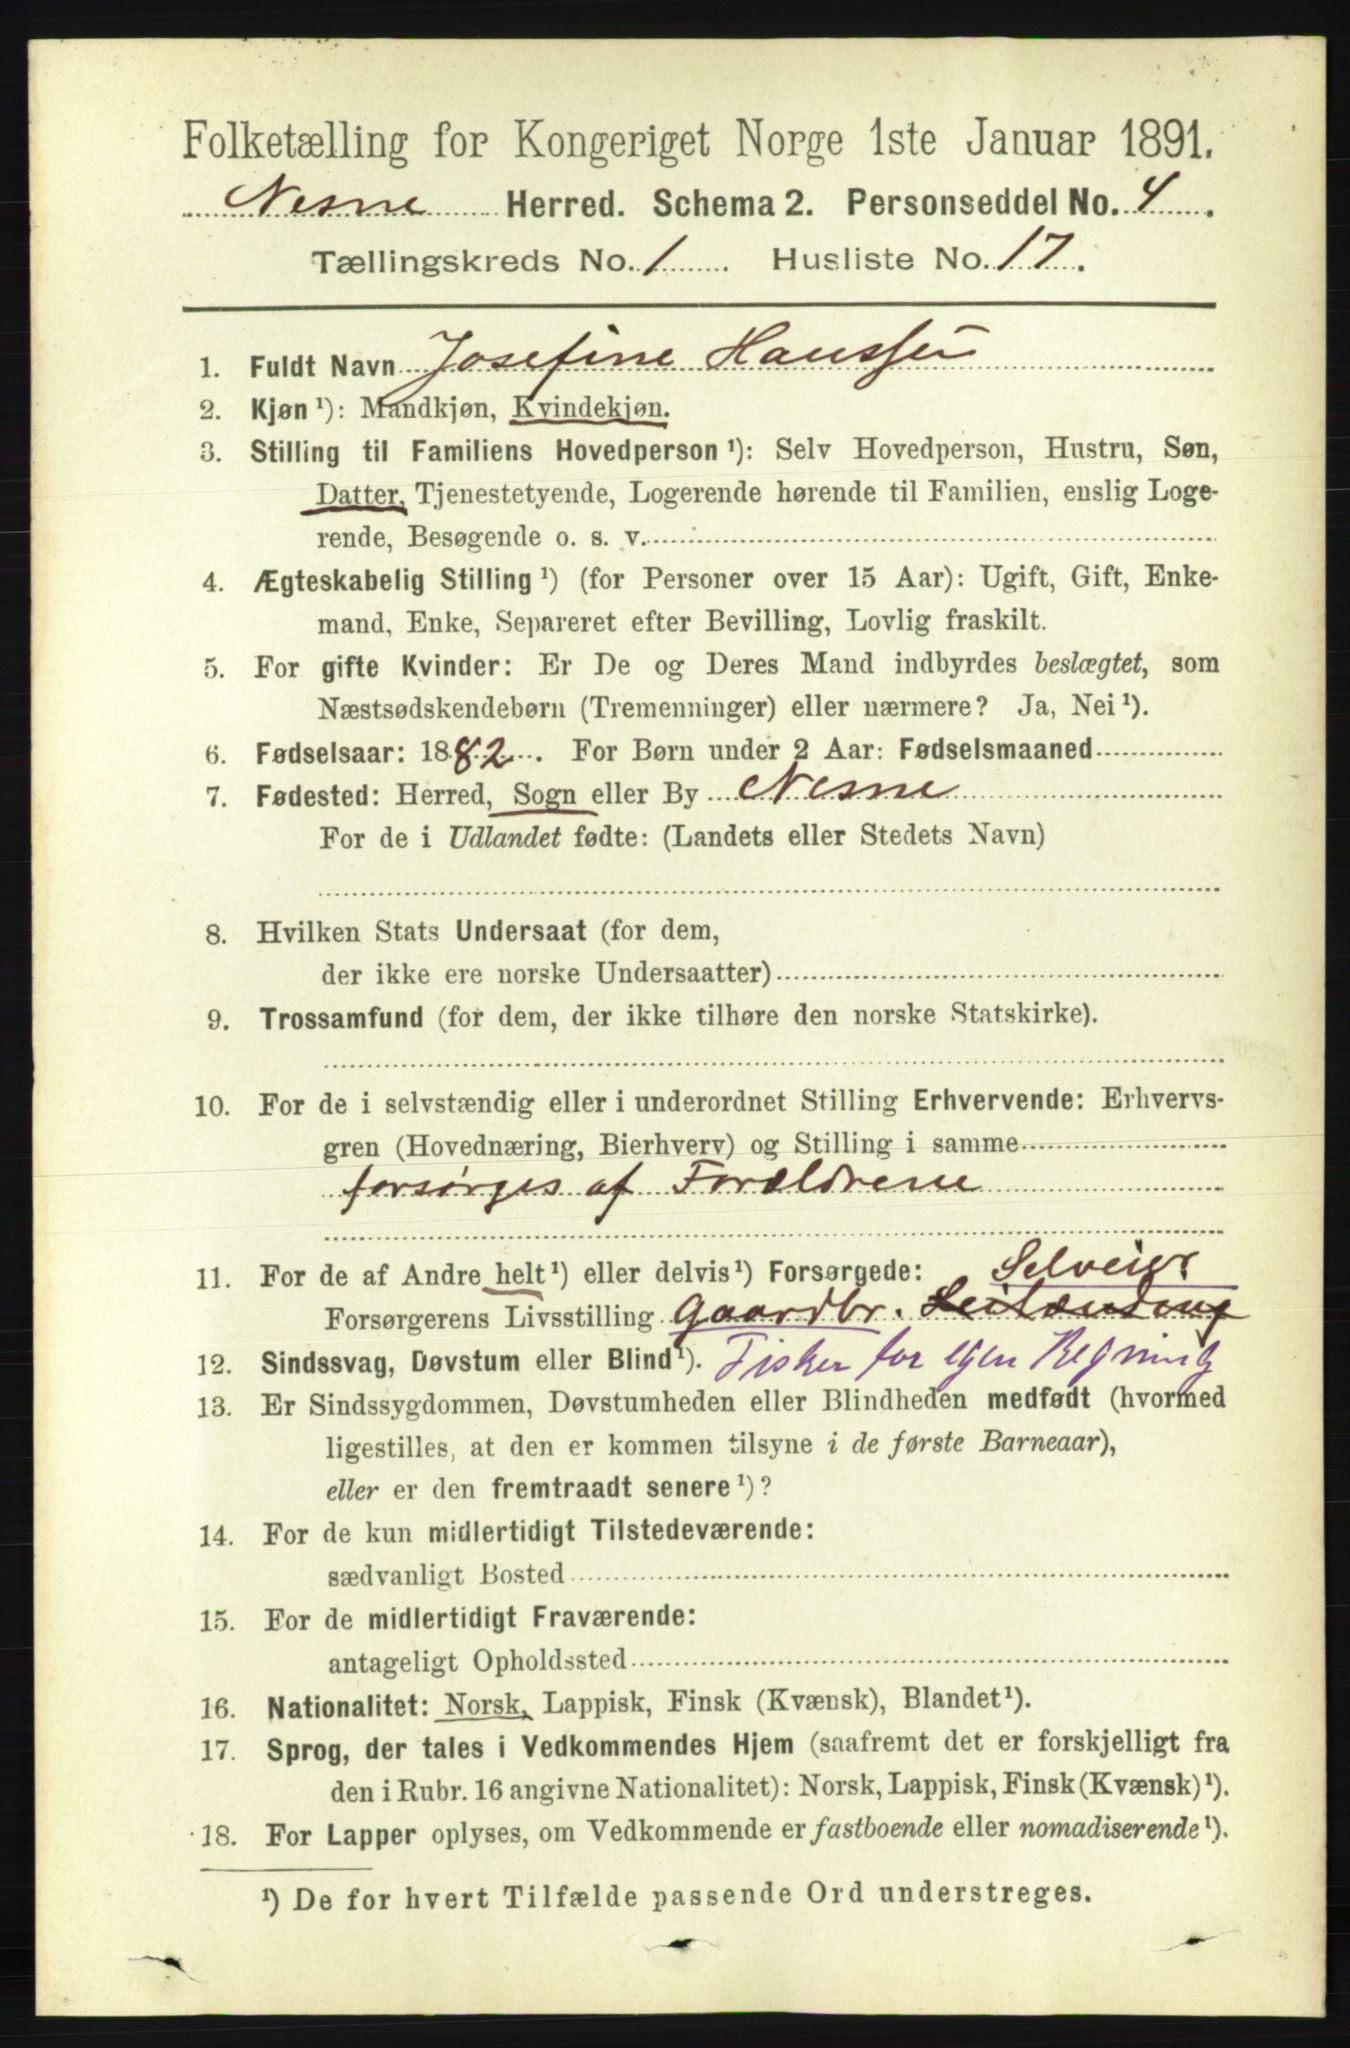 Folketælling for Kongeriget Norge 1ste Januar 1891.
Nesne Herred. Schema 2. Personseddel No. 4.
Tællingskreds No. 1. Husliste No. 17.
1. Fuldt Navn Josefine Hanssen
2. Kjøn ¹): Mandkjøn, Kvindekjøn.
3. Stilling til Familiens Hovedperson ¹): Selv Hovedperson, Hustru, Søn,
Datter, Tjenestetyende, Logerende hørende til Familien, enslig Loge-
rende, Besøgende o. s. v.
4. Ægteskabelig Stilling ¹) (for Personer over 15 Aar): Ugift, Gift, Enke-
mand, Enke, Separeret efter Bevilling, Lovlig fraskilt.
5. For gifte Kvinder: Er De og Deres Mand indbyrdes beslægtet, som
Næstsødskendebørn (Tremenninger) eller nærmere? Ja, Nei ¹).
6. Fødselsaar: 1882. For Børn under 2 Aar: Fødselsmaaned
7. Fødested: Herred, Sogn eller By Nesne
For de i Udlandet fødte: (Landets eller Stedets Navn)
8. Hvilken Stats Undersaat (for dem,
der ikke ere norske Undersaatter)
9. Trossamfund (for dem, der ikke tilhøre den norske Statskirke).
10. For de i selvstændig eller i underordnet Stilling Erhvervende: Erhvervs-
gren (Hovednæring, Bierhverv) og Stilling i samme
forsørges af Forældrene
11. For de af Andre helt ¹) eller delvis ¹) Forsørgede: Selveier
Forsørgerens Livsstilling Gaardbr. Leilænding
12. Sindssvag, Døvstum eller Blind ¹). Fisker for egen Regning
13. Er Sindssygdommen, Døvstumheden eller Blindheden medfødt (hvormed
ligestilles, at den er kommen tilsyne i de første Barneaar),
eller er den fremtraadt senere ¹)?
14. For de kun midlertidigt Tilstedeværende:
sædvanligt Bosted
15. For de midlertidigt Fraværende:
antageligt Opholdssted
16. Nationalitet: Norsk, Lappisk, Finsk (Kvænsk), Blandet ¹).
17. Sprog, der tales i Vedkommendes Hjem (saafremt det er forskjelligt fra
den i Rubr. 16 angivne Nationalitet): Norsk, Lappisk, Finsk (Kvænsk) ¹).
18. For Lapper oplyses, om Vedkommende er fastboende eller nomadiserende ¹).
¹) De for hvert Tilfælde passende Ord understreges.